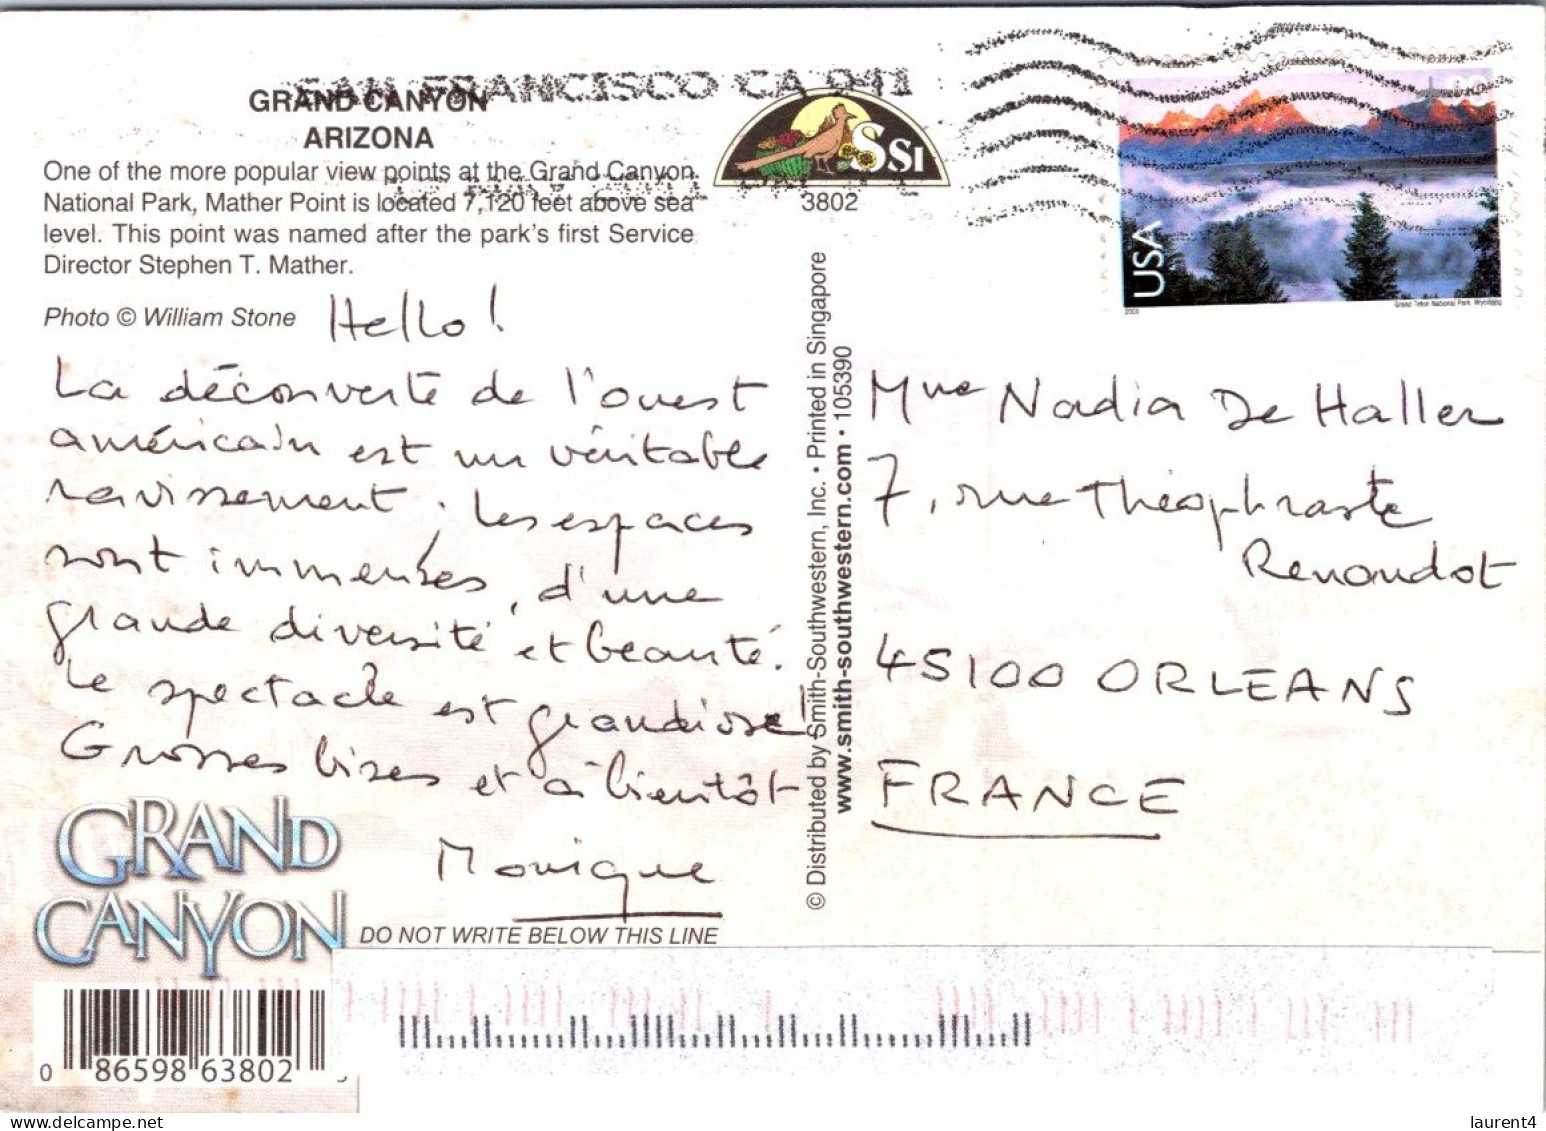 SAN FRANCISCO CA 941
GRAND CANYON
ARIZONA
One of the more popular view points at the Grand Canyon
National Park, Mather Point is located 7,120 feet above sea
level. This point was named after the park's first Service
Director Stephen T. Mather.
Photo © William Stone
Hello!
La découverte de l'ouest
américain est un véritable
ravissement ; les espaces
sont immenses, d'une
grande diversité et beauté.
Le spectacle est grandiose!
Grosses bises et à bientôt
Monique
GRAND
CANYON
DO NOT WRITE BELOW THIS LINE
0 86598 63802
SSI
3802
© Distributed by Smith-Southwestern, Inc. • Printed in Singapore
www.smith-southwestern.com • 105390
USA
Grand Teton National Park, Wyoming
Mme Nadia De Haller
7, rue Théophraste
Renaudot
45100 ORLEANS
FRANCE
laurent4